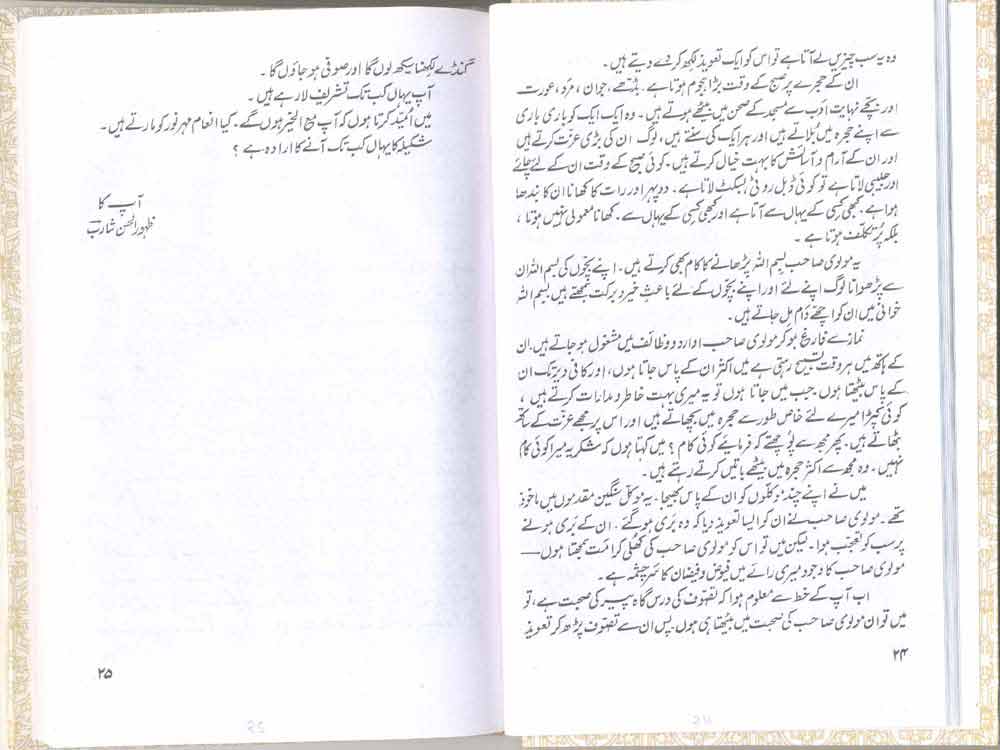 وہ یہ سب چیزیں لے آتا ہے تو اس کو ایک تعویذ لکھ کر دے دیتے ہیں۔
ان کے حجرے پر صبح کے وقت بڑا ہجوم ہوتا ہے۔ بڈھے، جوان، مرد، عورت
اور بچے نہایت ادب سے مسجد کے صحن میں بیٹھے ہوتے ہیں۔ وہ ایک ایک کو باری باری
سے اپنے حجرہ میں بُلاتے ہیں اور ہر ایک کی سنتے ہیں، لوگ ان کی بڑی عزت کرتے ہیں
اور ان کے آرام و آسائش کا بہت خیال کرتے ہیں۔ کوئی صبح کے وقت ان کے لئے چائے
اور جلیبی لاتا ہے تو کوئی ڈبل روٹی بسکٹ لاتا ہے۔ دوپہر اور رات کا کھانا ان کا بندھا
ہوا ہے۔ کبھی کسی کے یہاں سے آتا ہے اور کبھی کسی کے یہاں سے۔ کھانا معمولی نہیں ہوتا،
بلکہ پُر تکلف ہوتا ہے۔
یہ مولوی صاحب بسم اللہ پڑھانے کا کام بھی کرتے ہیں۔ اپنے بچوں کی بسم اللہ ان
سے پڑھوانا لوگ اپنے لئے اور اپنے بچوں کے لئے باعثِ خیر و برکت سمجھتے ہیں بسم اللہ
خوانی میں ان کو اچھے دَام مِل جاتے ہیں۔
نماز سے فارغ ہو کر مولوی صاحب اوراد و وظائف میں مشغول ہو جاتے ہیں۔ ان
کے ہاتھ میں ہر وقت تسبیح رہتی ہے میں اکثر ان کے پاس جاتا ہوں، اور کافی دیر تک ان
کے پاس بیٹھتا ہوں۔ جب میں جاتا ہوں تو یہ میری بہت خاطر و مدارات کرتے ہیں،
کوئی کپڑا میرے لئے خاص طور سے حجرہ میں بچھاتے ہیں اور اس پر مجھے عزت کے ساتھ
بٹھاتے ہیں۔ پھر مجھ سے پُوچھتے کہ فرمائیے کوئی کام؟ میں کہتا ہوں کہ شکریہ میرا کوئی کام
نہیں۔ وہ مجھ سے اکثر حجرہ میں بیٹھے باتیں کرتے رہتے ہیں۔
میں نے اپنے چند موکلوں کو ان کے پاس بھیجا۔ یہ موکل سنگین مقدموں میں ماخوذ
تھے۔ مولوی صاحب نے ان کو ایسا تعویذ دیا کہ وہ بَری ہو گئے۔ ان کے بَری ہونے
پر سب کو تعجب ہوا۔ لیکن میں تو اس کو مولوی صاحب کی کھلی کرامت سمجھتا ہوں —
مولوی صاحب کا وجود میری رائے میں فیوض و فیضان کا سرچشمہ ہے۔
اب آپ کے خط سے معلوم ہوا کہ تصوف کی درس گاہ پیر کی صحبت ہے، تو
میں تو ان مولوی صاحب کی صحبت میں بیٹھتا ہی ہوں۔ پس ان سے تصوف پڑھ کر تعویذ
۲۴
گنڈے لکھنا سیکھ لوں گا اور صوفی ہو جاؤں گا۔
آپ یہاں کب تک تشریف لا رہے ہیں۔
میں اُمید کرتا ہوں کہ آپ مع الخیر ہوں گے۔ کیا انعام مہر نور کو مارتے ہیں۔
شکیلہ کا یہاں کب تک آنے کا ارادہ ہے؟
آپ کا
ظہور الحسن شارب
۲۵